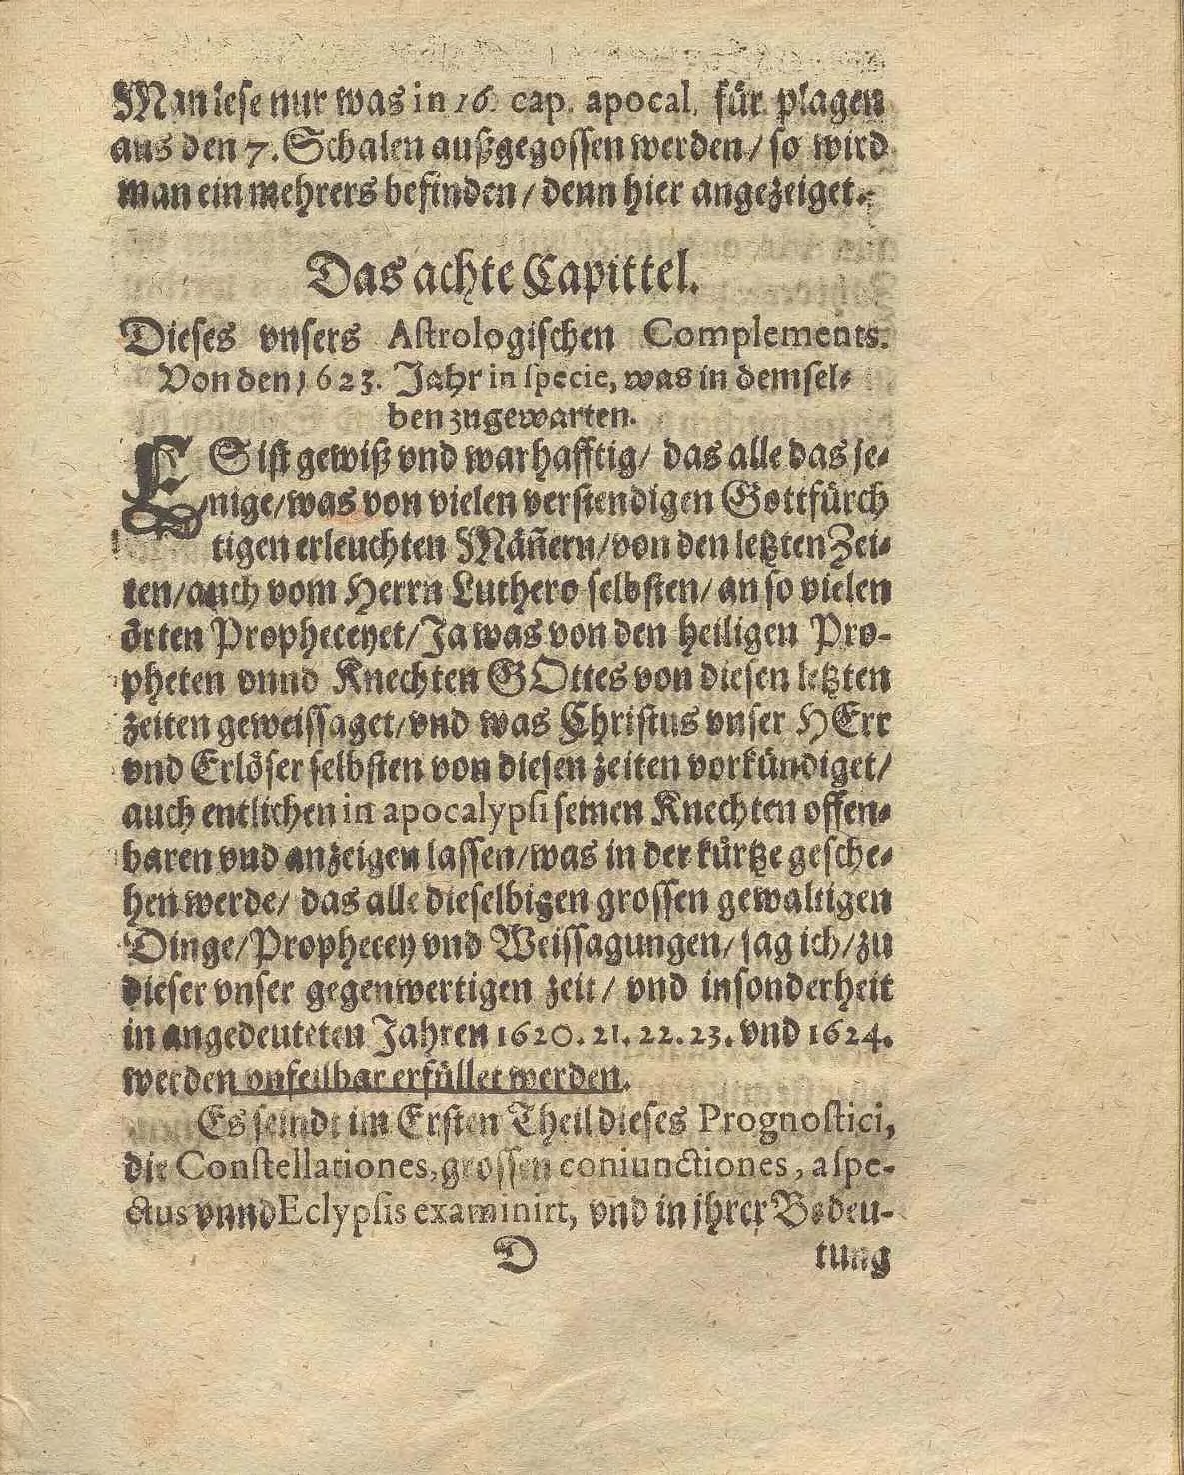 Man lese nur was in 16. cap. apocal. für plagen
aus den 7. Schalen außgegossen werden / so wird
man ein mehrers befinden / denn hier angezeiget.
Das achte Capittel.
Dieses vnsers Astrologischen Complements.
Von den 1623. Jahr in specie, was in demsel-
ben zugewarten.
ES ist gewiß vnd warhafftig / das alle das je-
nige / was von vielen verstendigen Gottfürch
tigen erleuchten Mäñern / von den letzten Zei-
ten / auch vom Herrn Luthero selbsten / an so vielen
örten Propheceyet / Ja was von den heiligen Pro-
pheten vnnd Knechten GOttes von diesen letzten
zeiten geweissaget / vnd was Christus vnser HErr
vnd Erlöser selbsten von diesen zeiten vorkündiget /
auch entlichen in apocalypsi seinen Knechten offen-
baren vnd anzeigen lassen / was in der kürtze gesche-
hen werde / das alle dieselbigen grossen gewaltigen
Dinge / Prophecey vnd Weissagungen / sag ich / zu
dieser vnser gegenwertigen zeit / vnd insonderheit
in angedeuteten Jahren 1620. 21. 22. 23. vnd 1624.
werden vnfeilbar erfüllet werden.
Es seindt im Ersten Theil dieses Prognostici,
die Constellationes, grossen coniunctiones, aspe-
ctus vnnd Eclypsis examinirt, vnd in jhrer Bedeu-
D tung